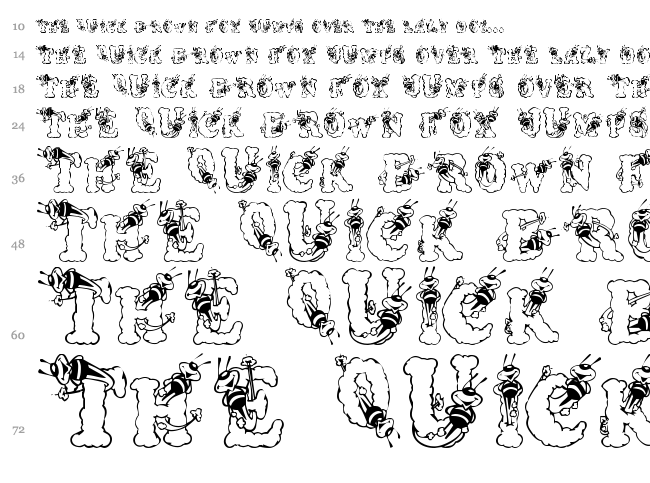 10 THE QUICK BROWN FOX JUMPS OVER THE LAZY DOG...
14 THE QUICK BROWN FOX JUMPS OVER THE LAZY DO
18 THE QUICK BROWN FOX JUMPS OVER TH
24 THE QUICK BROWN FOX JUMPS
36 THE QUICK BROWN F
48 THE QUICK BRO
60 THE QUICK B
72 THE QUICK